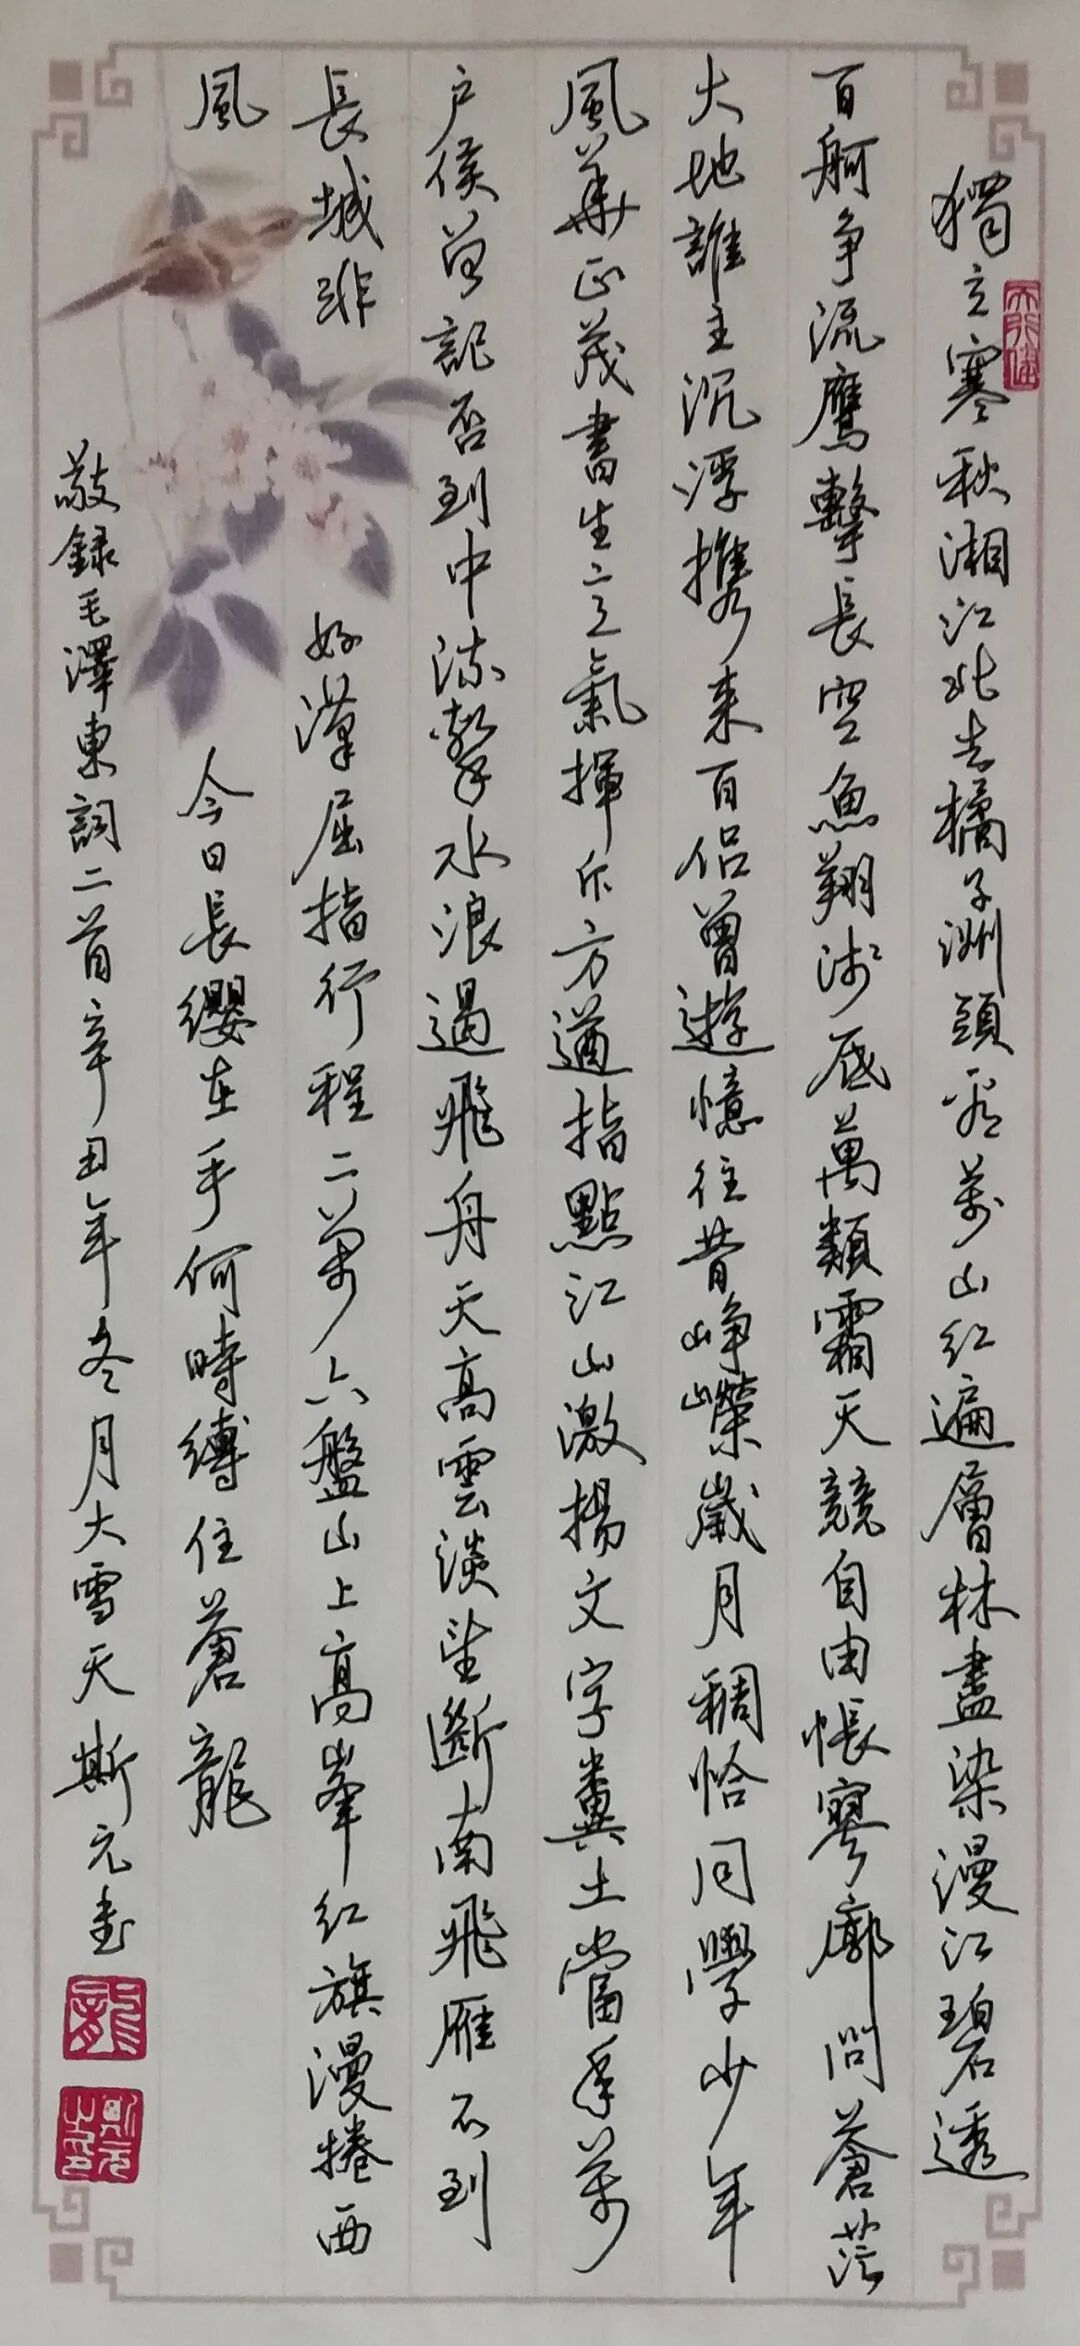 獨立寒秋湘江北去橘子洲頭看萬山紅遍層林盡染漫江碧透
百舸争流鷹擊長空魚翔淺底萬類霜天競自由悵寥廓問蒼茫
大地誰主沉浮攜來百侣曾遊憶往昔崢嶸歲月稠恰同學少年
風華正茂書生意氣揮斥方遒指點江山激揚文字糞土當年萬
户侯曾記否到中流擊水浪遏飛舟天高雲淡望斷南飛雁不到
長城非好漢屈指行程二萬六盤山上高峯紅旗漫捲西
風今日長纓在手何時縛住蒼龍
敬録毛澤東詞二首辛丑年冬月大雪天斯元書